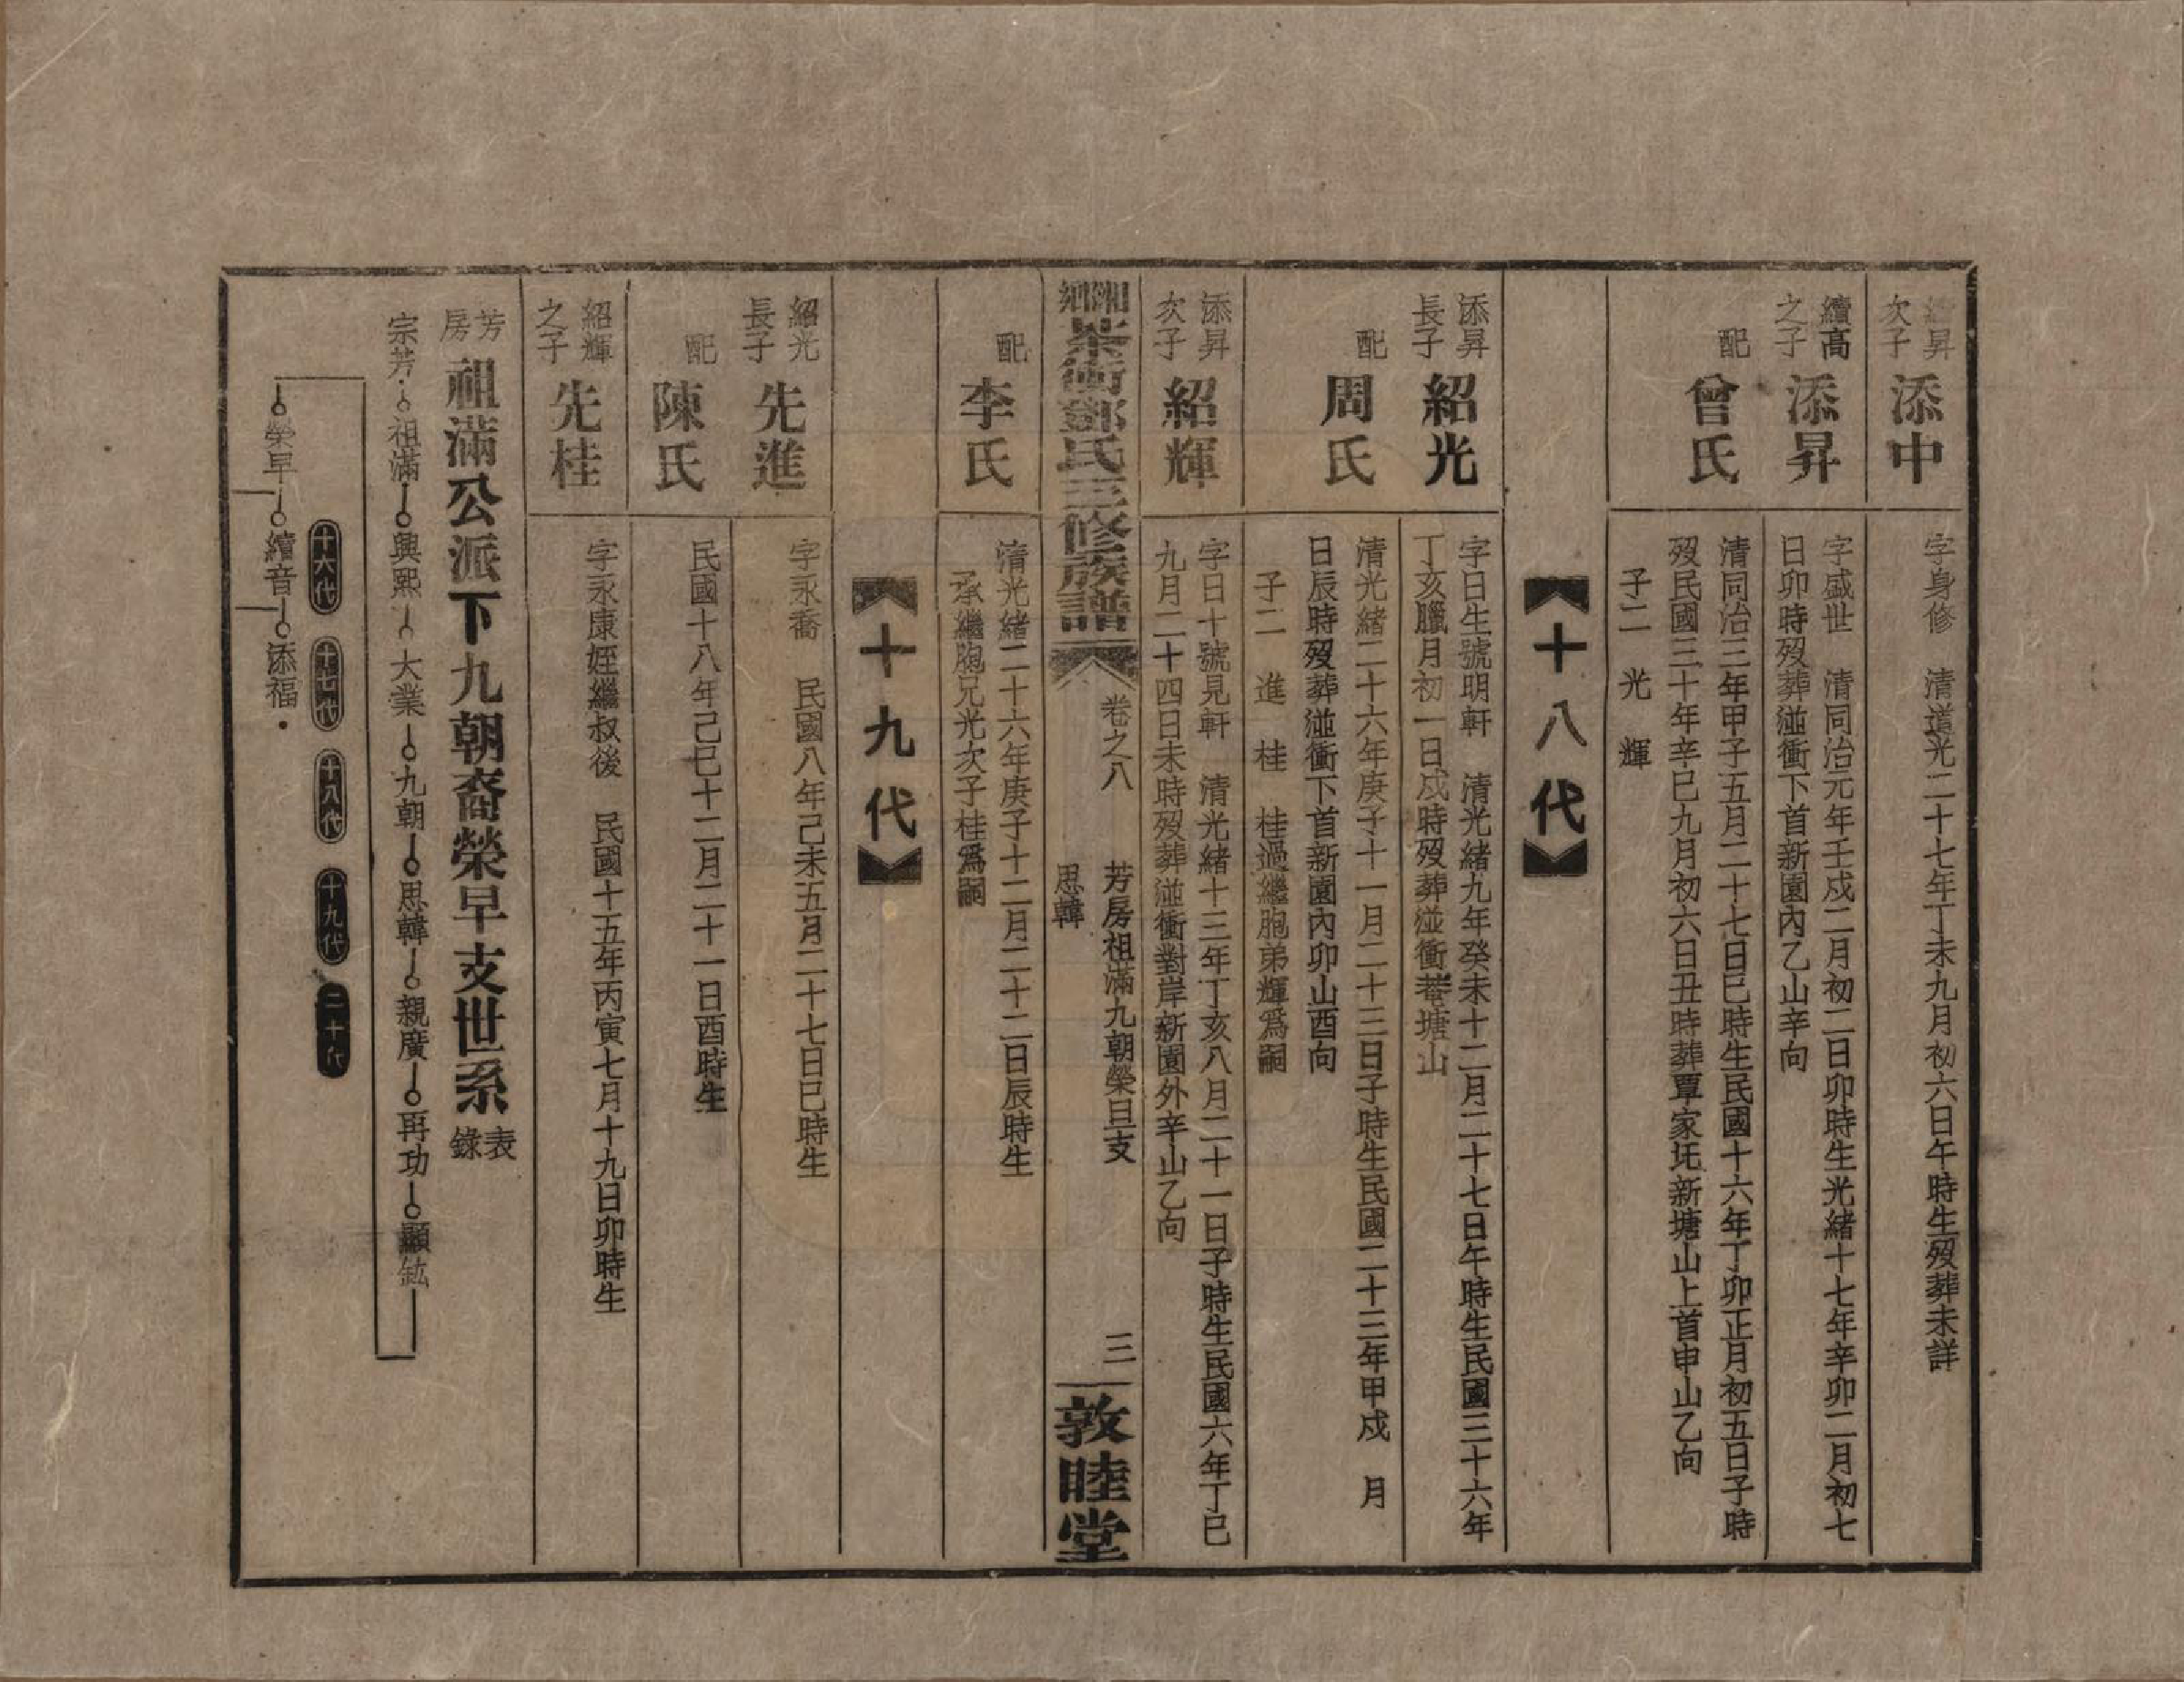 昇次子
添中
字身修　清道光二十七年丁未九月初六日午時生歿葬未詳
續高之子
添昇
字盛世　清同治元年壬戍二月初二日卯時生光緒十七年辛卯二月初七
日卯時歿葬湴衝下首新園內乙山辛向
配
曾氏
清同治三年甲子五月二十七日巳時生民國十六年丁卯正月初五日子時
歿民國三十年辛巳九月初六日丑時葬覃家坵新塘山上首申山乙向
子二　光　輝
十八代
添昇長子
紹光
字日生號明軒　清光緒九年癸未十二月二十七日午時生民國三十六年
丁亥臘月初一日戍時歿葬湴衝菴塘山
配
周氏
清光緒二十六年庚子十一月二十三日子時生民國二十三年甲戍　月
日辰時歿葬湴衝下首新園內卯山酉向
子二　進　桂　桂過繼胞弟輝爲嗣
添昇次子
紹輝
字日十號見軒　清光緒十三年丁亥八月二十一日子時生民國六年丁巳
九月二十四日未時歿葬湴衝對岸新園外辛山乙向
湘鄉茶衝鄧氏三修族譜
卷之八
芳房祖滿九朝榮旦支
思韓
三
敦睦堂
配
李氏
清光緒二十六年庚子十二月二十二日辰時生
承繼胞兄光次子桂爲嗣
十九代
紹光長子
先進
字永喬　民國八年己未五月二十七日巳時生
配
陳氏
民國十八年己巳十二月二十一日酉時生
紹輝之子
先桂
字永康姪繼叔後　民國十五年丙寅七月十九日卯時生
芳房
祖滿公派下九朝裔榮早支世系
表錄
宗芳　祖滿　興熙　大業　九朝　思韓　親廣　再功　顯鈜
十六代　十七代　十八代　十九代　二十代
榮早　續音　添福